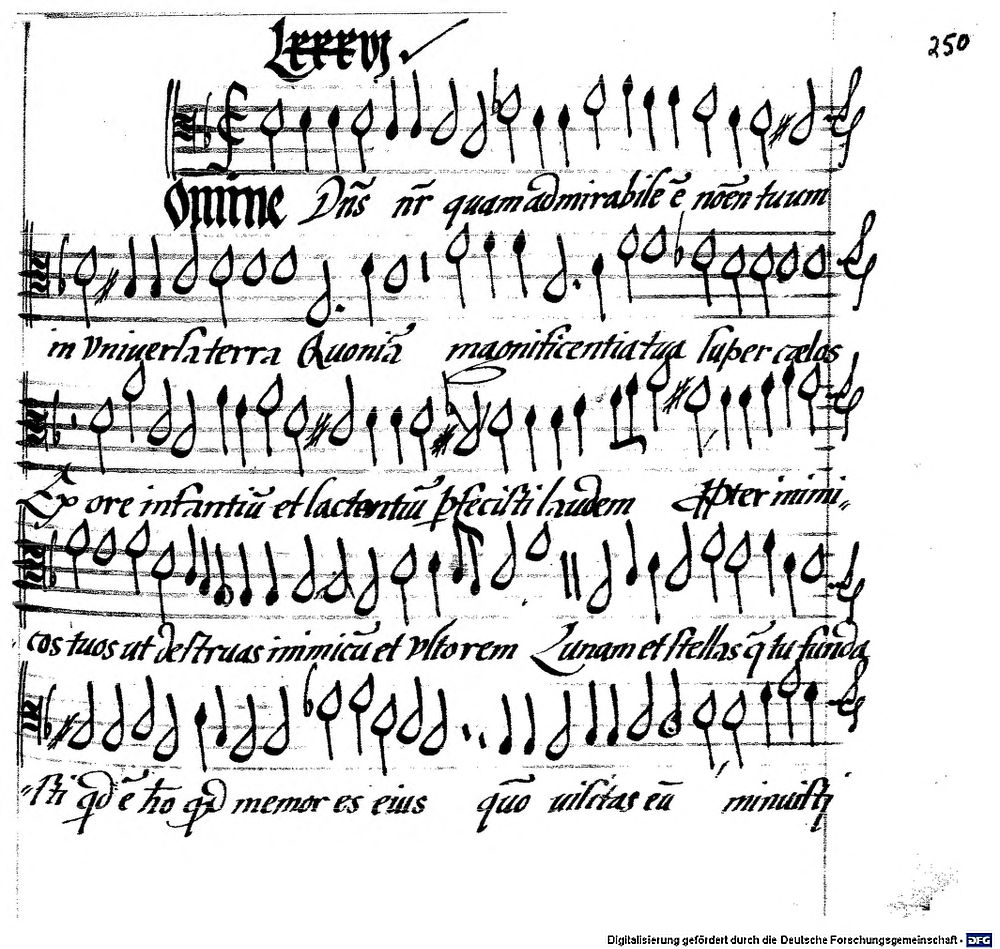 Lxxxvj
250
Domine Dn̄s nr̄ quam admirabile ē nōen tuum
in universa terra Quoniā magnificentia tua super cælos
Ex ore infantiū et lactentiū pfecisti laudem Ppter inimi-
cos tuos ut destruas inimicū et Vltorem Lunam et stellas q̄ tu funda
sti qd ē ho qd memor es eius quo visitas eū minuisti
Digitalisierung gefördert durch die Deutsche Forschungsgemeinschaft - DFG